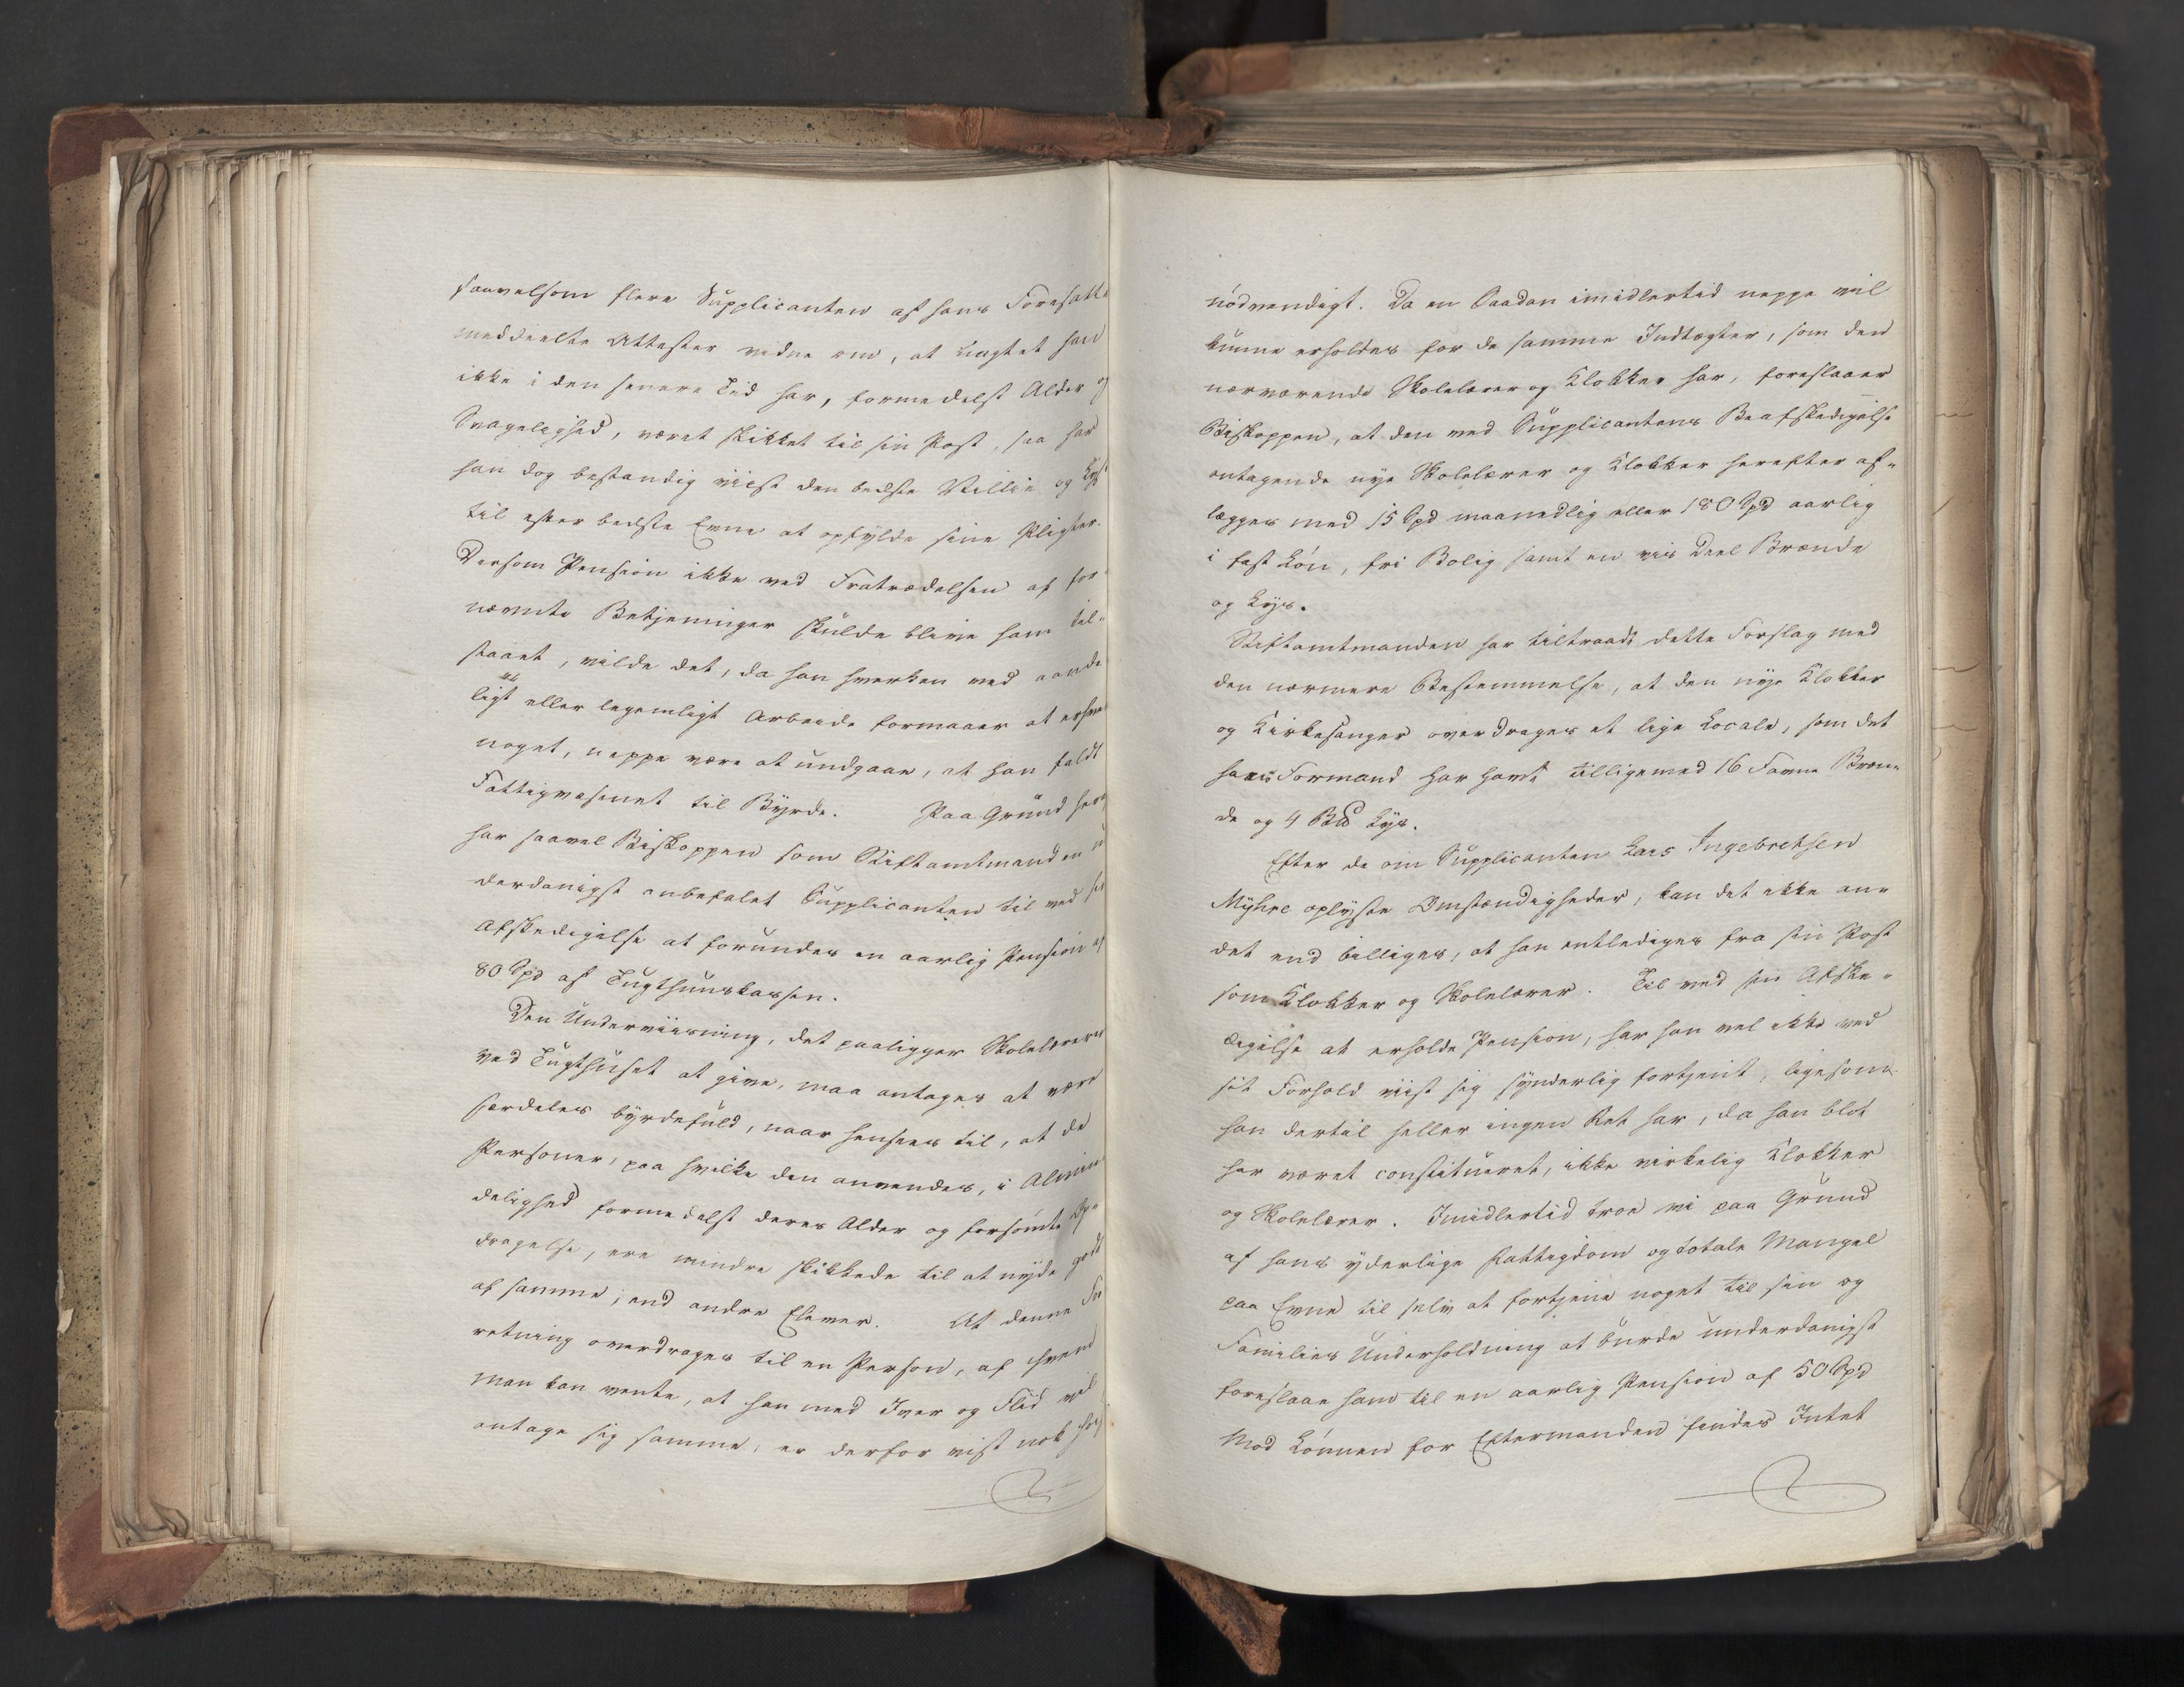 saavelsom flere Supplicanten af hans Foresatte
meddeelte Attester vidne om, at uagtet han
ikke i den senere Tid har, formedelst Alder og
Svagelighed, været skikket til sin Post, saa har
han dog bestandig viist den bedste Villie og Lyst
til efter bedste Evne at opfylde sine Pligter.
Dersom Pension ikke ved Fratrædelsen af for-
nævnte Betjeninger skulde blive ham til-
staaet, vilde det, da han hverken ved aande
ligt eller legemligt Arbeide formaaer at erhverve
noget, neppe være at undgaae, at han faldt
Fattigvæsenet til Byrde. Paa Grund heraf
har saavel Biskoppen som Stiftamtmanden u
derdanigst anbefalet Supplicanten til ved sin
Afskedigelse at forundes en aarlig Pension af
80 Spd af Tugthuuskassen.
Den Underviisning, det paaligger Skolelæreren
ved Tugthuset at give, maa antages at være
særdeles byrdefuld, naar hensees til, at de
Personer, paa hvilke den anvendes, i Almin
delighed formedelst deres Alder og forsømte Op-
dragelse, ere mindre skikkede til at nyde godt
af samme, end andre Elever. At denne For
retning overdrages til en Person, af hvem
man kan vente, at han med Iver og Flid vil
antage sig samme, er derfor vist nok høist
nødvendigt. Da en Saadan imidlertid neppe vil
kunne erholdes for de samme Indtægter, som den
nærværende Skolelærer og Klokker har, foreslaaer
Biskoppen, at den ved Supplicantens Beafskedigelse
antagende nye Skolelærer og Klokker herefter af-
lægges med 15 Spd maanedlig eller 180 Spd aarlig
i fast Løn, fri Bolig samt en vis Deel Brænde
og Lys.
Stiftamtmanden har tiltraadt dette Forslag med
den nærmere Bestemmelse, at den nye Klokker
og Kirkesanger overdrages et lige Locale, som det
hans Formand har havt tilligemed 16 Favne Bræn-
de og 4 B℔ Lys.
Efter de om Supplicanten Lars Ingebretsen
Myhre oplyste Omstændigheder, kan det ikke an-
det end billiges, at han entlediges fra sin Post
som Klokker og Skolelærer. Til ved sin Afske-
digelse at erholde Pension, har han vel ikke ved
sit Forhold viist sig synderlig fortjent, ligesom
han dertil heller ingen Ret har, da han blot
har været constitueret, ikke virkelig Klokker
og Skolelærer. Imidlertid troe vi paa Grund
af hans yderlige Fattigdom og totale Mangel
paa Evne til selv at fortjene noget til sin og
Families Underholdning at burde underdanigst
foreslaae ham til en aarlig Pension af 50 Spd
Mod Lønnen for Eftermanden findes Intet